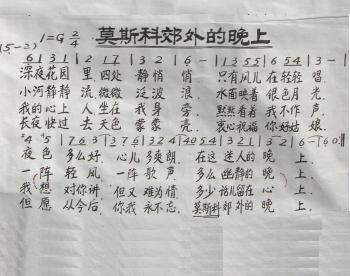 (5-2) 1=G 2/4 莫斯科郊外的晚上
6131 | 2 17 | 3 2 | 6 - | 1355 | 654 | 3 - |
深夜花园 里,四处 静悄 悄 只有风儿 在轻轻 唱,
小河静静 流微微 泛波 浪, 水面映着 银色月 光,
我的心上 人坐在 我身 旁, 默默看着 我不作 声
长夜快过 去天色 蒙蒙 亮, 衷心祝福 你好姑 娘,
#4 #5 | 763 | 376 | 324
夜色 多么好, 心儿 多爽朗, 在这 迷人的 晚 上.
一阵 轻风, 一阵 歌声, 多么 幽静的 晚 上.
我想 对你讲, 但又 难为情 多少 话儿留在 心 上
但愿 从今后, 你我 永不忘, 莫斯科 郊外的 晚 上.